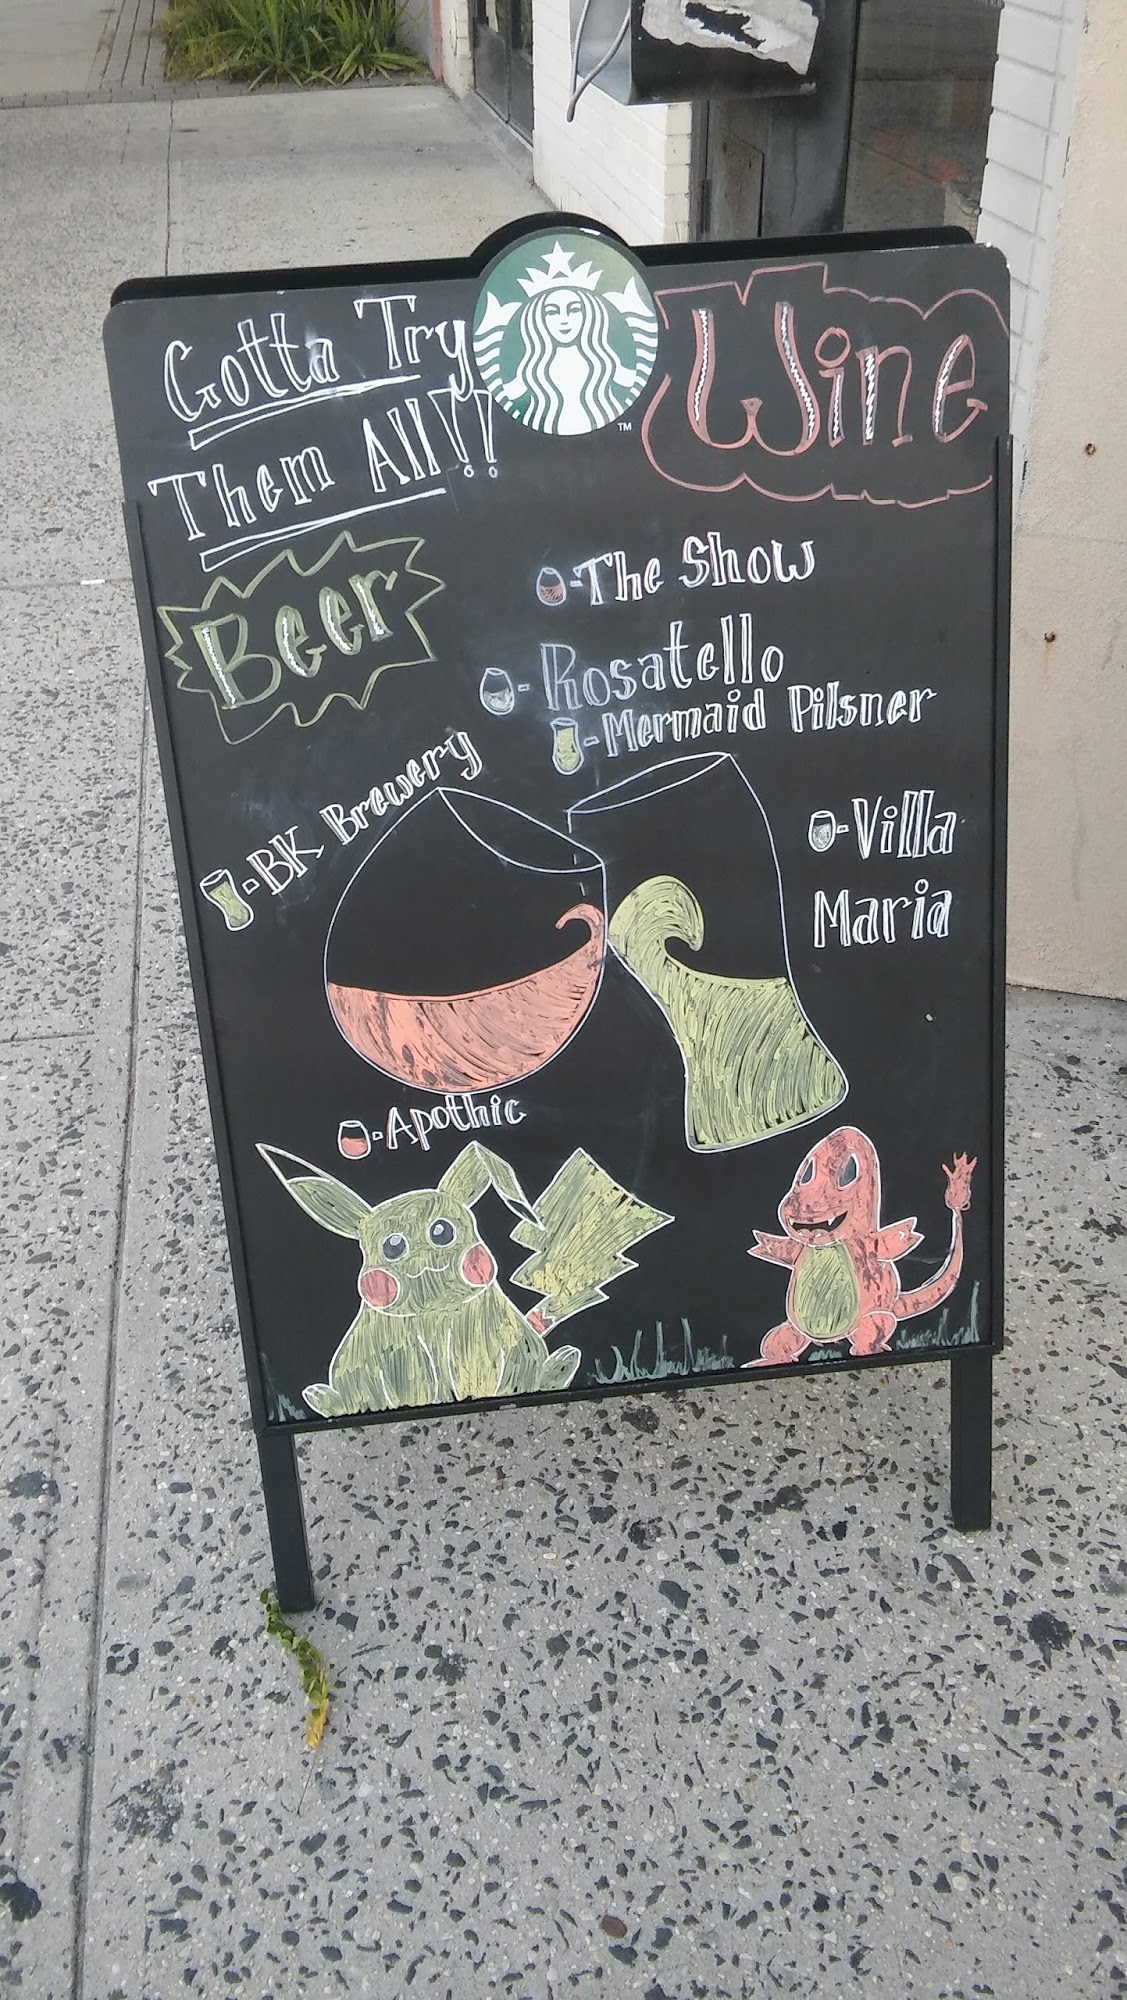 Gotta Try
Them All!!
Wine
Beer
TM
-The Show
-Rosatello
-Mermaid Pilsner
-BK Brewery
-Villa
Maria
-Apothic